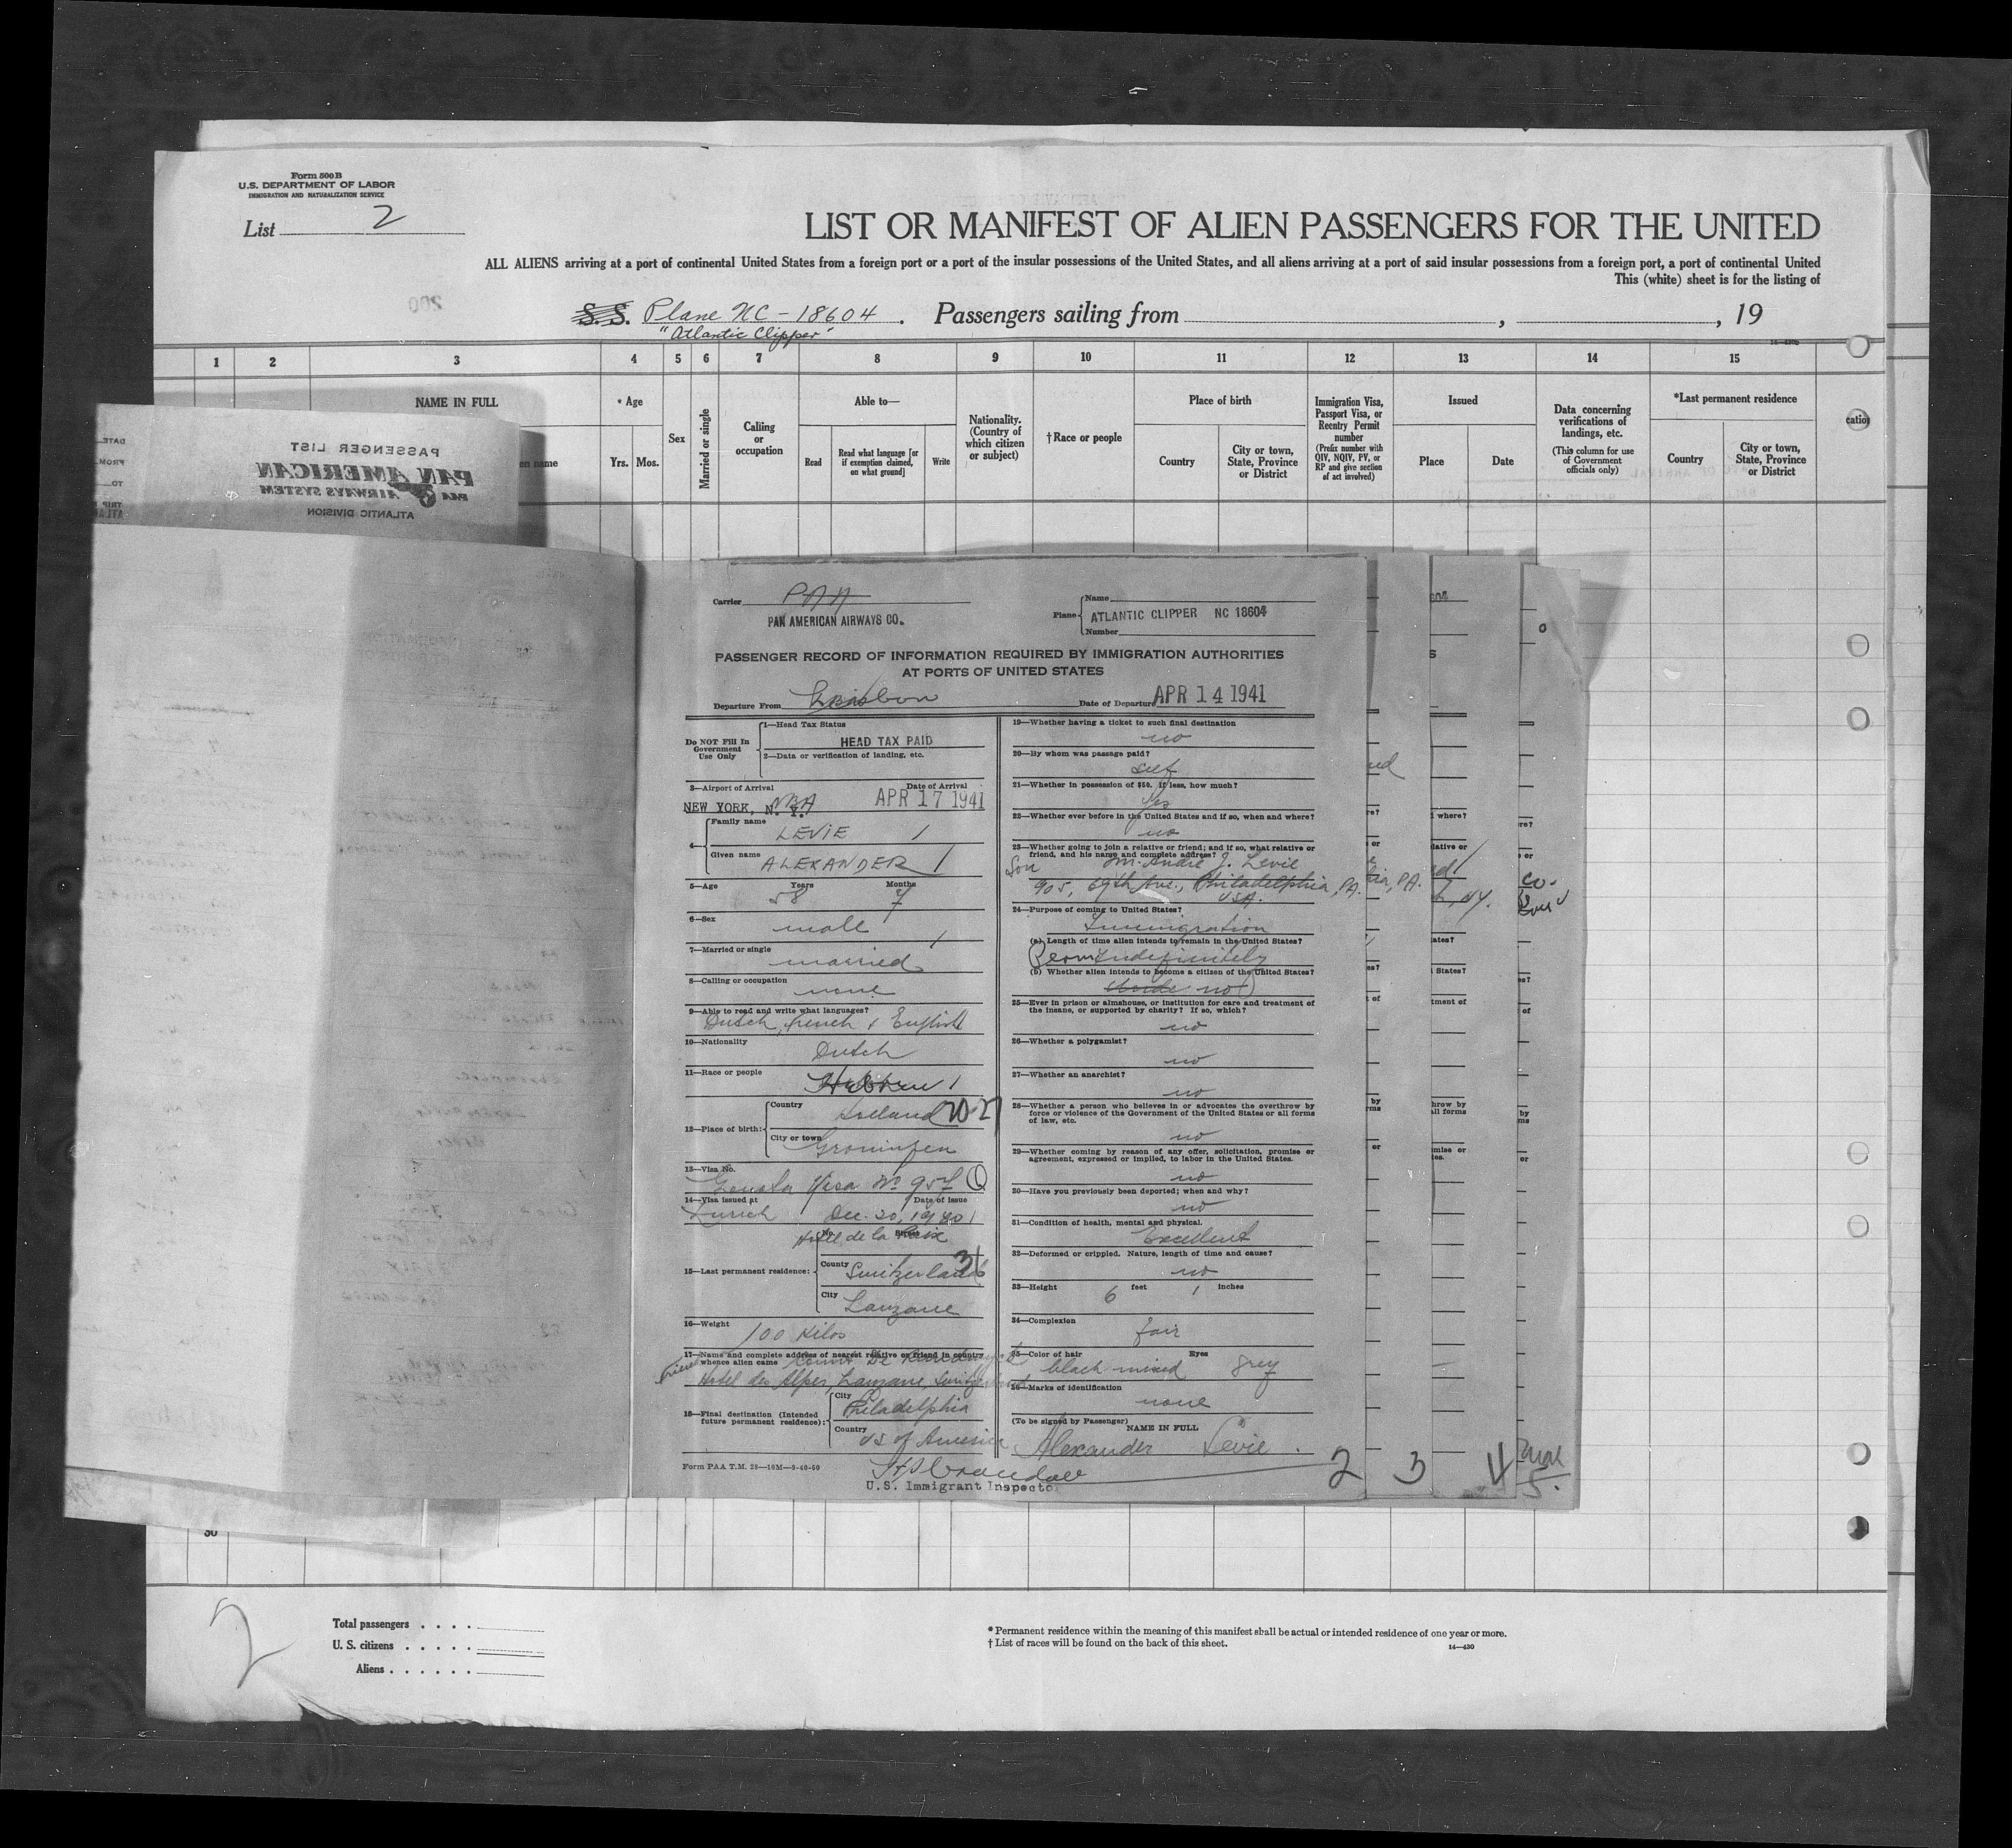 Form 500 B
U.S. DEPARTMENT OF LABOR
IMMIGRATION AND NATURALIZATION SERVICE
List 2
LIST OR MANIFEST OF ALIEN PASSENGERS FOR THE UNITED
ALL ALIENS arriving at a port of continental United States from a foreign port or a port of the insular possessions of the United States, and all aliens arriving at a port of said insular possessions from a foreign port, a port of continental United
This (white) sheet is for the listing of
200
S. S. Plane NC-18604. Passengers sailing from , , 19
"Atlantic Clipper"
1 2 3 4 5 6 7 8 9 10 11 12 13 14 15
NAME IN FULL
* Age
Yrs. Mos.
Sex
Married or single
Calling
or
occupation
Able to—
Read
Read what language [or
if exemption claimed,
on what ground]
Write
Nationality.
(Country of
which citizen
or subject)
† Race or people
Place of birth
Country
City or town,
State, Province
or District
Immigration Visa,
Passport Visa, or
Reentry Permit
number
(Prefix number with
QIV, NQIV, PV, or
RP and give section
of act involved)
Issued
Place
Date
Data concerning
verifications of
landings, etc.
(This column for use
of Government
officials only)
*Last permanent residence
Country
City or town,
State, Province
or District
PASSENGER LIST
PAN AMERICAN
PAA AIRWAYS SYSTEM
ATLANTIC DIVISION
DATE
FROM
TO
TRIP
Carrier PAA
PAN AMERICAN AIRWAYS CO.
Plane
Name
ATLANTIC CLIPPER NC 18604
Number
PASSENGER RECORD OF INFORMATION REQUIRED BY IMMIGRATION AUTHORITIES
AT PORTS OF UNITED STATES
Departure From Lisbon Date of Departure APR 14 1941
Do NOT Fill In
Government
Use Only
1—Head Tax Status
HEAD TAX PAID
2—Data or verification of landing, etc.
3—Airport of Arrival Date of Arrival
NEW YORK, N. Y. APR 17 1941
4— Family name LEVIE
Given name ALEXANDER
5—Age Years 58 Months 7
6—Sex male
7—Married or single married
8—Calling or occupation none
9—Able to read and write what languages?
Dutch, french & English
10—Nationality Dutch
11—Race or people Hebrew
12—Place of birth: Country Holland
City or town Groningen
13—Visa No. Visa No 957
14—Visa issued at Zurich Date of issue Dec. 20, 1940
15—Last permanent residence: No. Street Hotel de la Paix
County Switzerland 36
City Lauzane
16—Weight 100 Kilos
17—Name and complete address of nearest relative or friend in country
whence alien came
friend
Hotel des Alpes, Lauzane, Switzerland
18—Final destination (Intended
future permanent residence): City Philadelphia
Country US of America
19—Whether having a ticket to such final destination
no
20—By whom was passage paid?
self
21—Whether in possession of $50. If less, how much?
yes
22—Whether ever before in the United States and if so, when and where?
no
23—Whether going to join a relative or friend; and if so, what relative or
friend, and his name and complete address?
Son M. André J. Levie
905, 69th Ave., Philadelphia, PA.
USA.
24—Purpose of coming to United States?
Immigration
(a) Length of time alien intends to remain in the United States?
Perm Indefinitely
(b) Whether alien intends to become a citizen of the United States?
no
25—Ever in prison or almshouse, or institution for care and treatment of
the insane, or supported by charity? If so, which?
no
26—Whether a polygamist?
no
27—Whether an anarchist?
no
28—Whether a person who believes in or advocates the overthrow by
force or violence of the Government of the United States or all forms
of law, etc.
no
29—Whether coming by reason of any offer, solicitation, promise or
agreement, expressed or implied, to labor in the United States.
no
30—Have you previously been deported; when and why?
no
31—Condition of health, mental and physical.
Excellent
32—Deformed or crippled. Nature, length of time and cause?
no
33—Height 6 feet 1 inches
34—Complexion
fair
35—Color of hair black mixed Eyes grey
36—Marks of identification
none
(To be signed by Passenger)
NAME IN FULL
Alexander Levie.
Form PAA T.M. 28—10M—9-40-50
U.S. Immigrant Inspector
2 3 4 5.
30
2
Total passengers
U. S. citizens
Aliens
* Permanent residence within the meaning of this manifest shall be actual or intended residence of one year or more.
† List of races will be found on the back of this sheet.
14—430